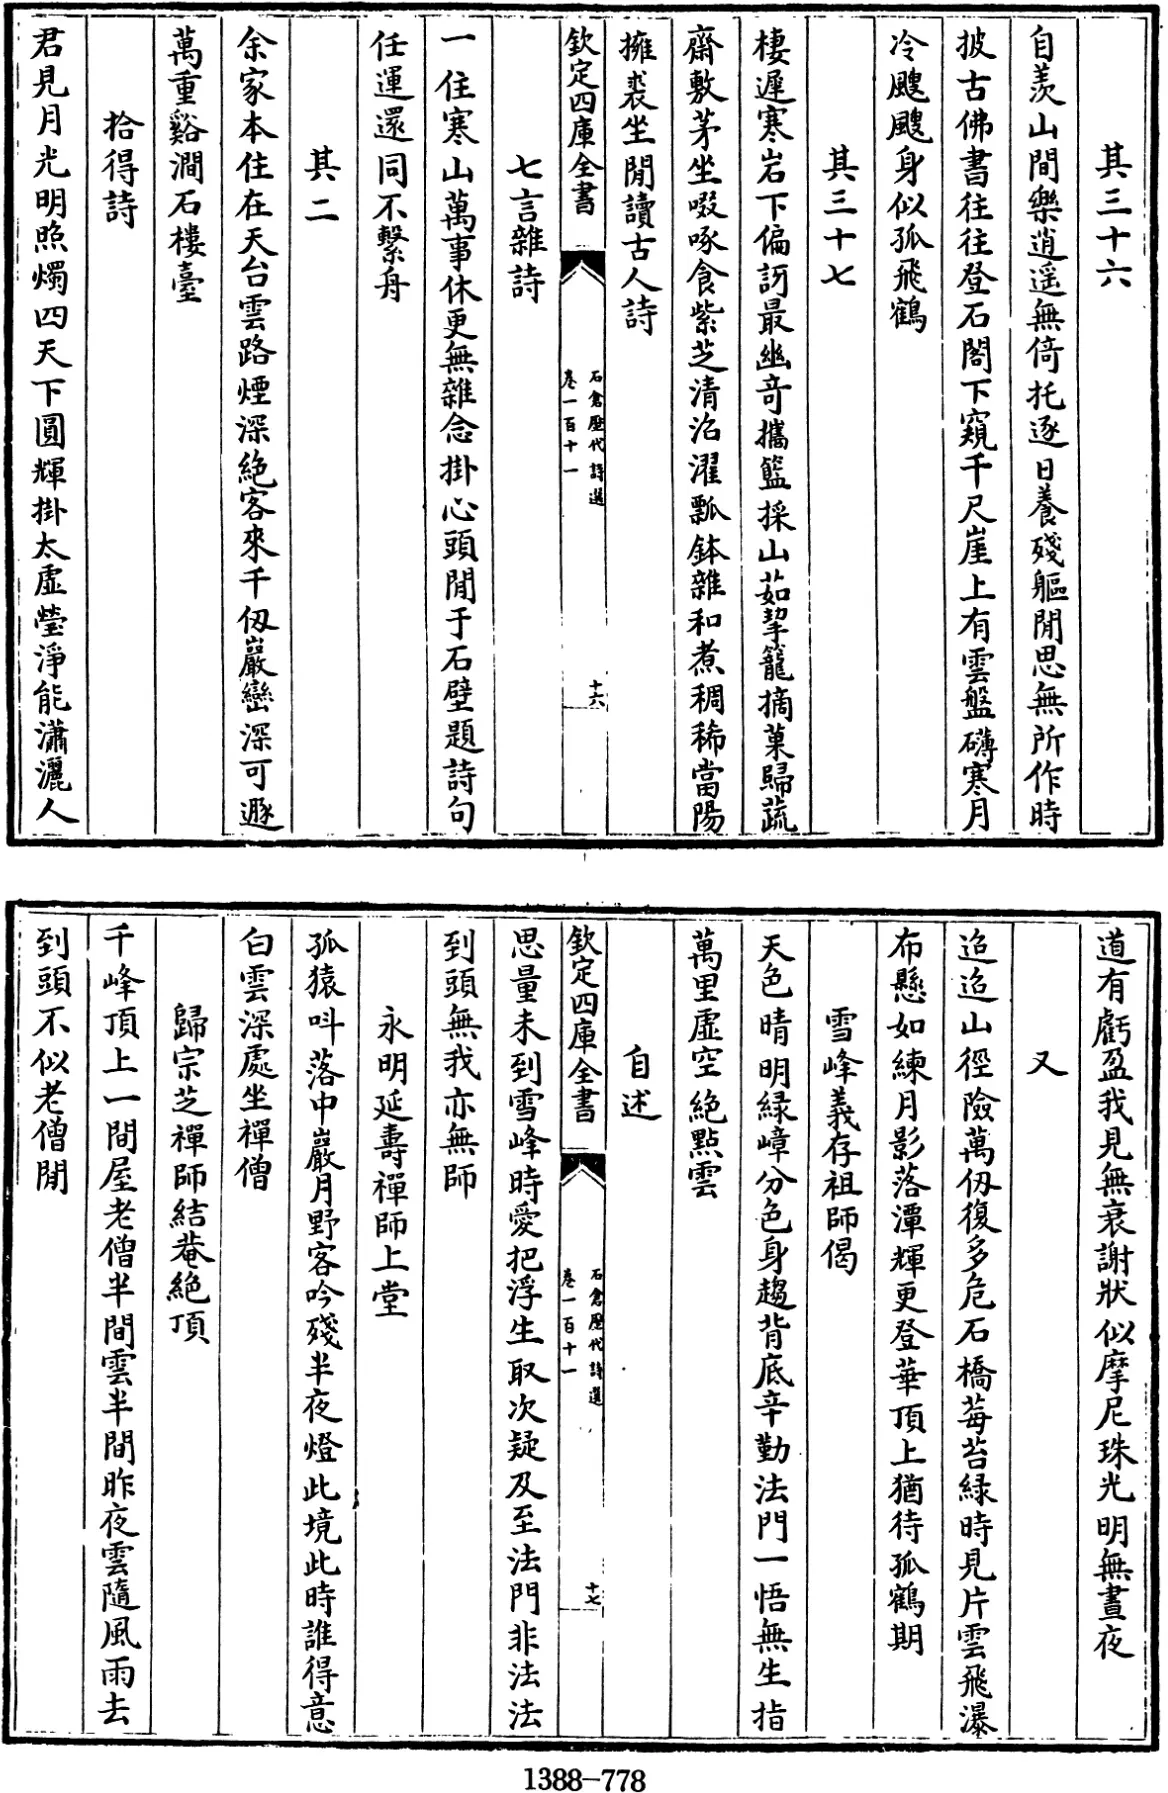 其三十六
自羨山間樂逍遥無倚托逐日養殘軀閒思無所作時
披古佛書往往登石閣下窺千尺崖上有雲盤礴寒月
冷颼颼身似孤飛鶴
其三十七
棲遲寒岩下偏訝最幽竒攜籃採山茹挈籠摘菓歸蔬
齋敷茅坐啜啄食紫芝清沼濯瓢鉢雜和煮稠稀當陽
擁裘坐閒讀古人詩
欽定四庫全書
石倉歷代詩選
卷一百十一
十六
七言雜詩
一住寒山萬事休更無雜念掛心頭閒于石壁題詩句
任運還同不繫舟
其二
余家本住在天台雲路煙深絶客來千仭巖巒深可遯
萬重谿澗石樓臺
拾得詩
君見月光明照燭四天下圓輝掛太虛瑩淨能瀟灑人
道有虧盈我見無衰謝狀似摩尼珠光明無晝夜
又
迢迢山徑險萬仭復多危石橋莓苔緑時見片雲飛瀑
布懸如練月影落潭輝更登華頂上猶待孤鶴期
雪峰義存祖師偈
天色晴明緑嶂分色身趨背底辛勤法門一悟無生指
萬里虛空絶點雲
自述
欽定四庫全書
石倉歷代詩選
卷一百十一
十七
思量未到雪峰時愛把浮生取次疑及至法門非法法
到頭無我亦無師
永明延壽禪師上堂
孤猿呌落中巖月野客吟殘半夜燈此境此時誰得意
白雲深處坐禪僧
歸宗芝禪師結菴絶頂
千峰頂上一間屋老僧半間雲半間昨夜雲隨風雨去
到頭不似老僧閒
1388-778